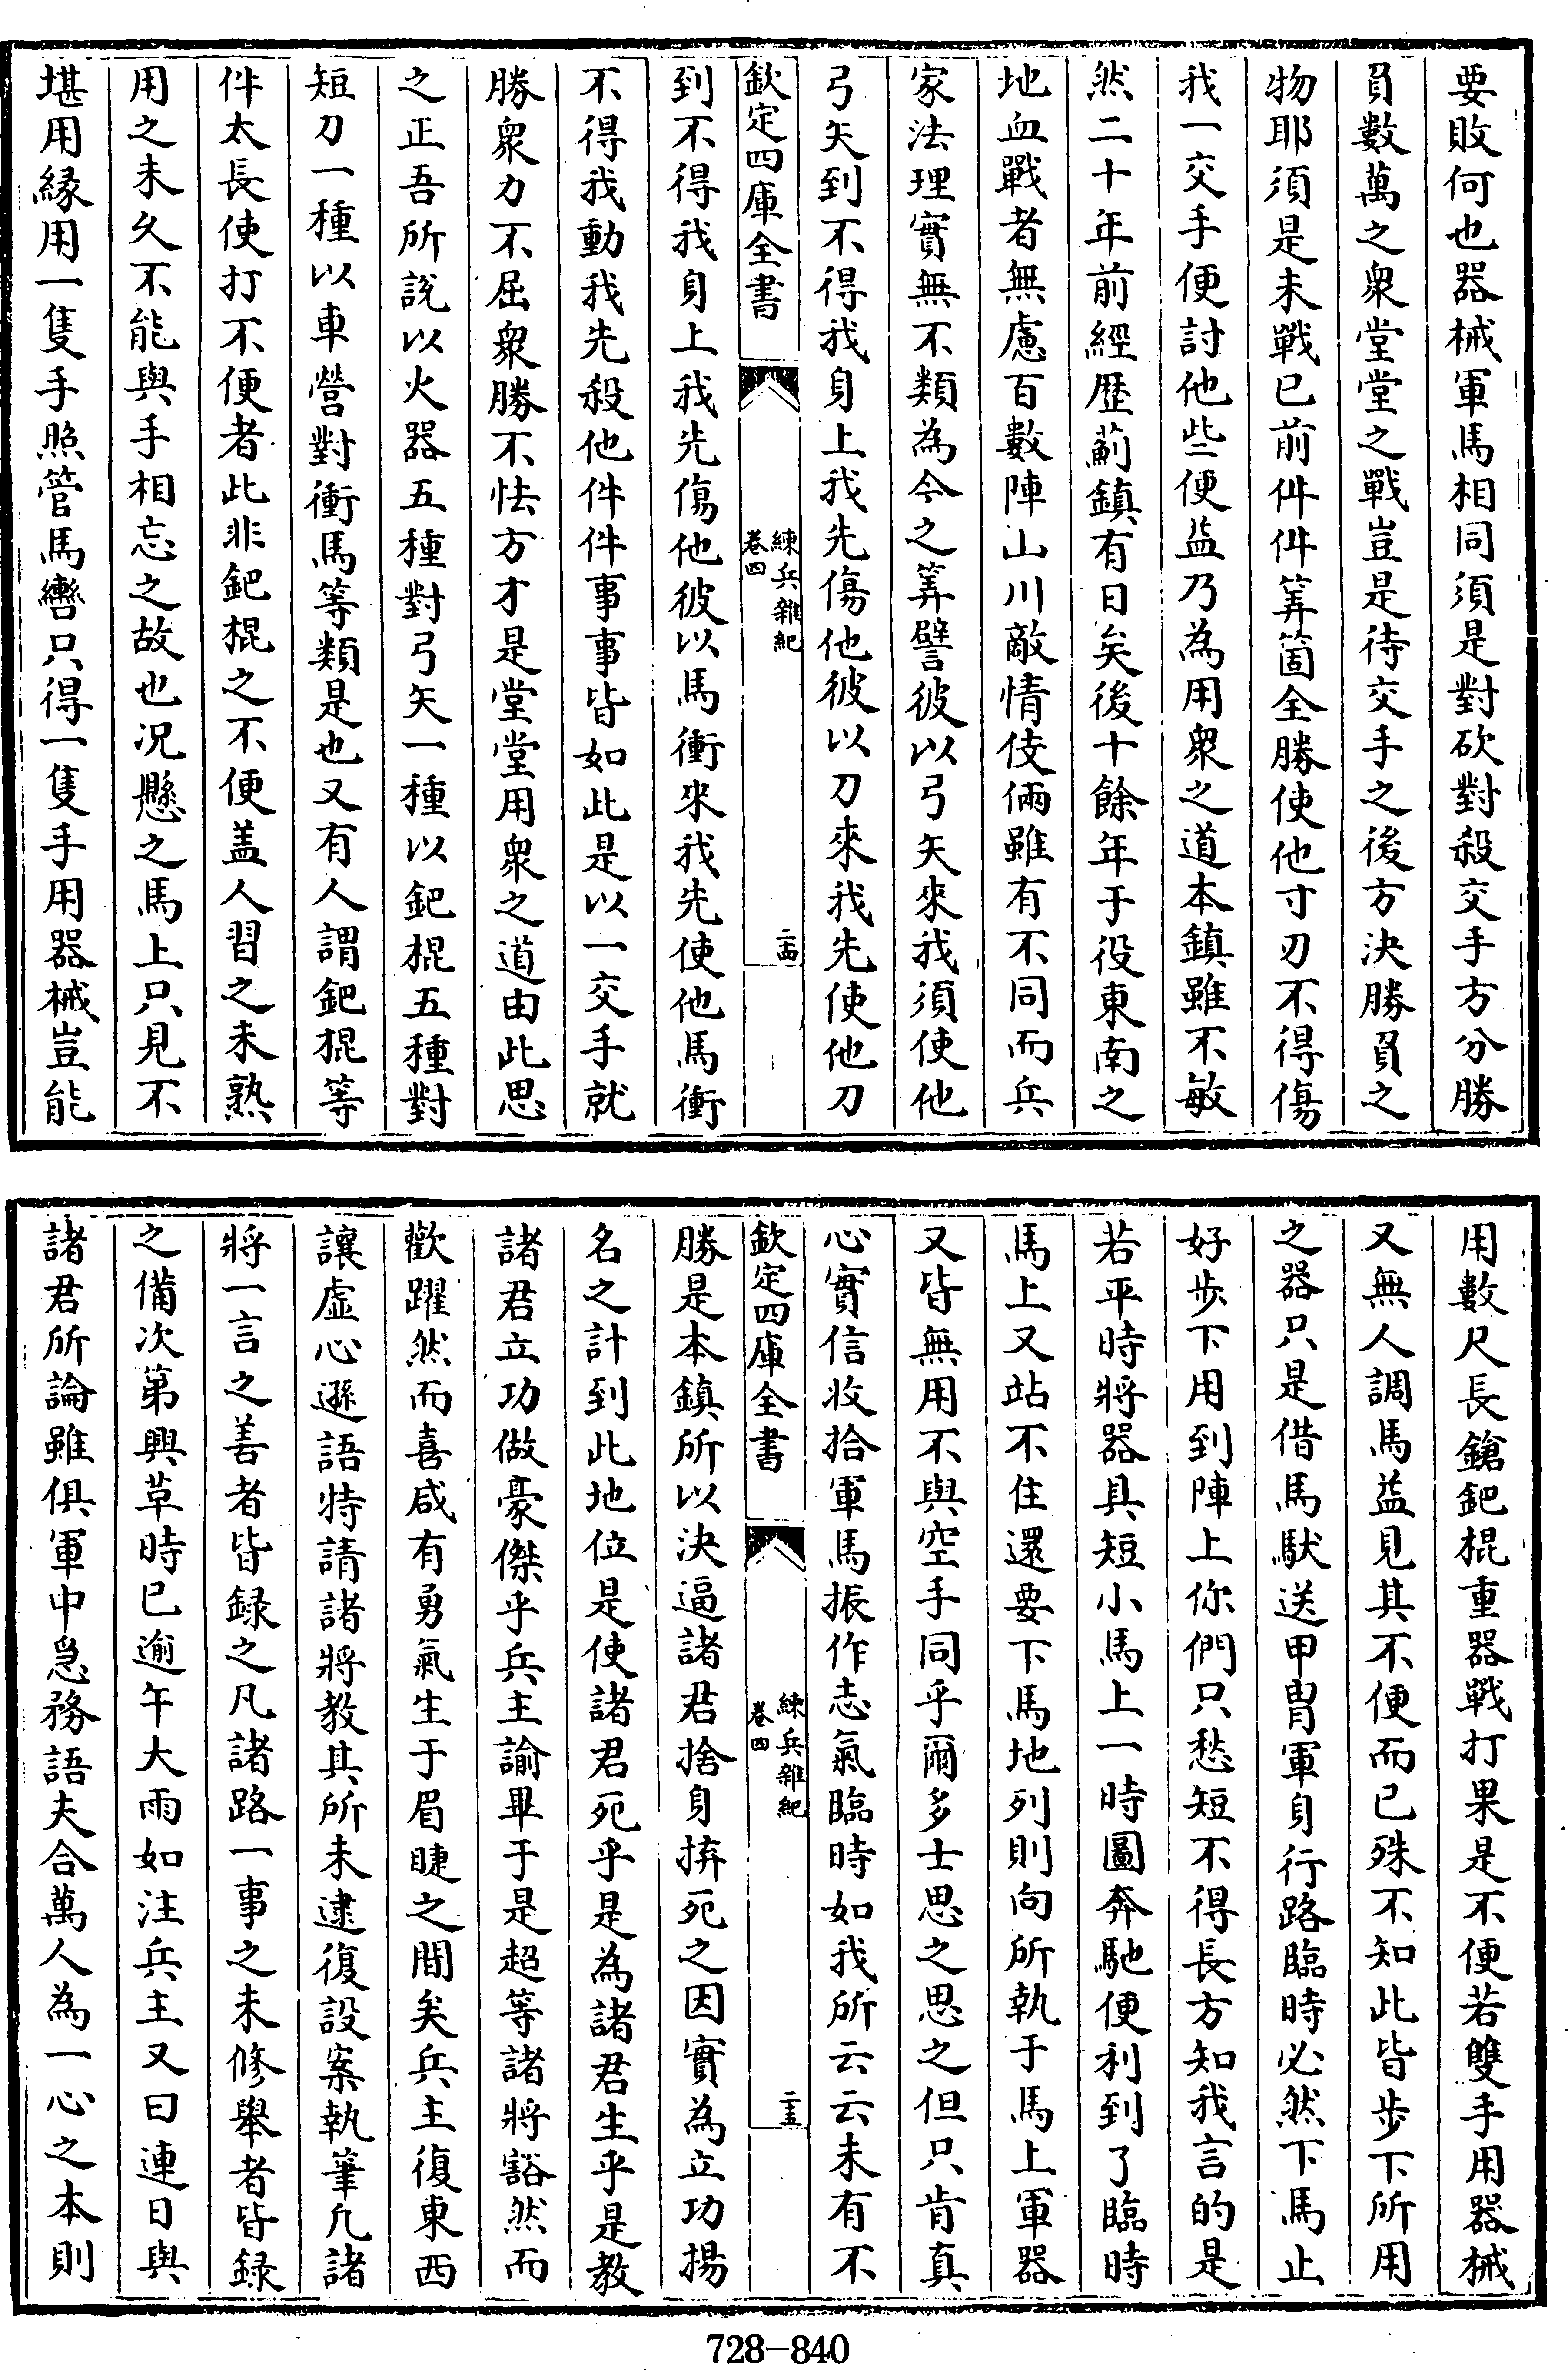 要敗何也器械軍馬相同須是對砍對殺交手方分勝
負數萬之衆堂堂之戰豈是待交手之後方決勝負之
物耶須是未戰已前件件筭箇全勝使他寸刃不得傷
我一交手便討他些便益乃為用衆之道本鎮雖不敏
然二十年前經歷薊鎮有日矣後十餘年于役東南之
地血戰者無慮百數陣山川敵情伎倆雖有不同而兵
家法理實無不類為今之筭譬彼以弓矢來我須使他
弓矢到不得我身上我先傷他彼以刀來我先使他刀
欽定四庫全書
練兵雜紀
卷四
二十四
到不得我身上我先傷他彼以馬衝來我先使他馬衝
不得我動我先殺他件件事事皆如此是以一交手就
勝衆力不屈衆勝不怯方才是堂堂用衆之道由此思
之正吾所說以火器五種對弓矢一種以鈀棍五種對
短刀一種以車營對衝馬等類是也又有人謂鈀棍等
件太長使打不便者此非鈀棍之不便盖人習之未熟
用之未久不能與手相忘之故也况懸之馬上只見不
堪用緣用一隻手照管馬轡只得一隻手用器械豈能
用數尺長鎗鈀棍重器戰打果是不便若雙手用器械
又無人調馬益見其不便而已殊不知此皆步下所用
之器只是借馬馱送甲冑軍身行路臨時必然下馬止
好步下用到陣上你們只愁短不得長方知我言的是
若平時將器具短小馬上一時圖奔馳便利到了臨時
馬上又站不住還要下馬地列則向所執于馬上軍器
又皆無用不與空手同乎爾多士思之思之但只肯真
心實信收拾軍馬振作志氣臨時如我所云云未有不
欽定四庫全書
練兵雜紀
卷四
二十五
勝是本鎮所以決逼諸君捨身拚死之因實為立功揚
名之計到此地位是使諸君死乎是為諸君生乎是教
諸君立功做豪傑乎兵主諭畢于是超等諸將豁然而
歡躍然而喜咸有勇氣生于眉睫之間矣兵主復東西
讓虛心遜語特請諸將教其所未逮復設案執筆凡諸
將一言之善者皆録之凡諸路一事之未修舉者皆録
之備次第興草時已逾午大雨如注兵主又曰連日與
諸君所論雖俱軍中急務語夫合萬人為一心之本則
728-840